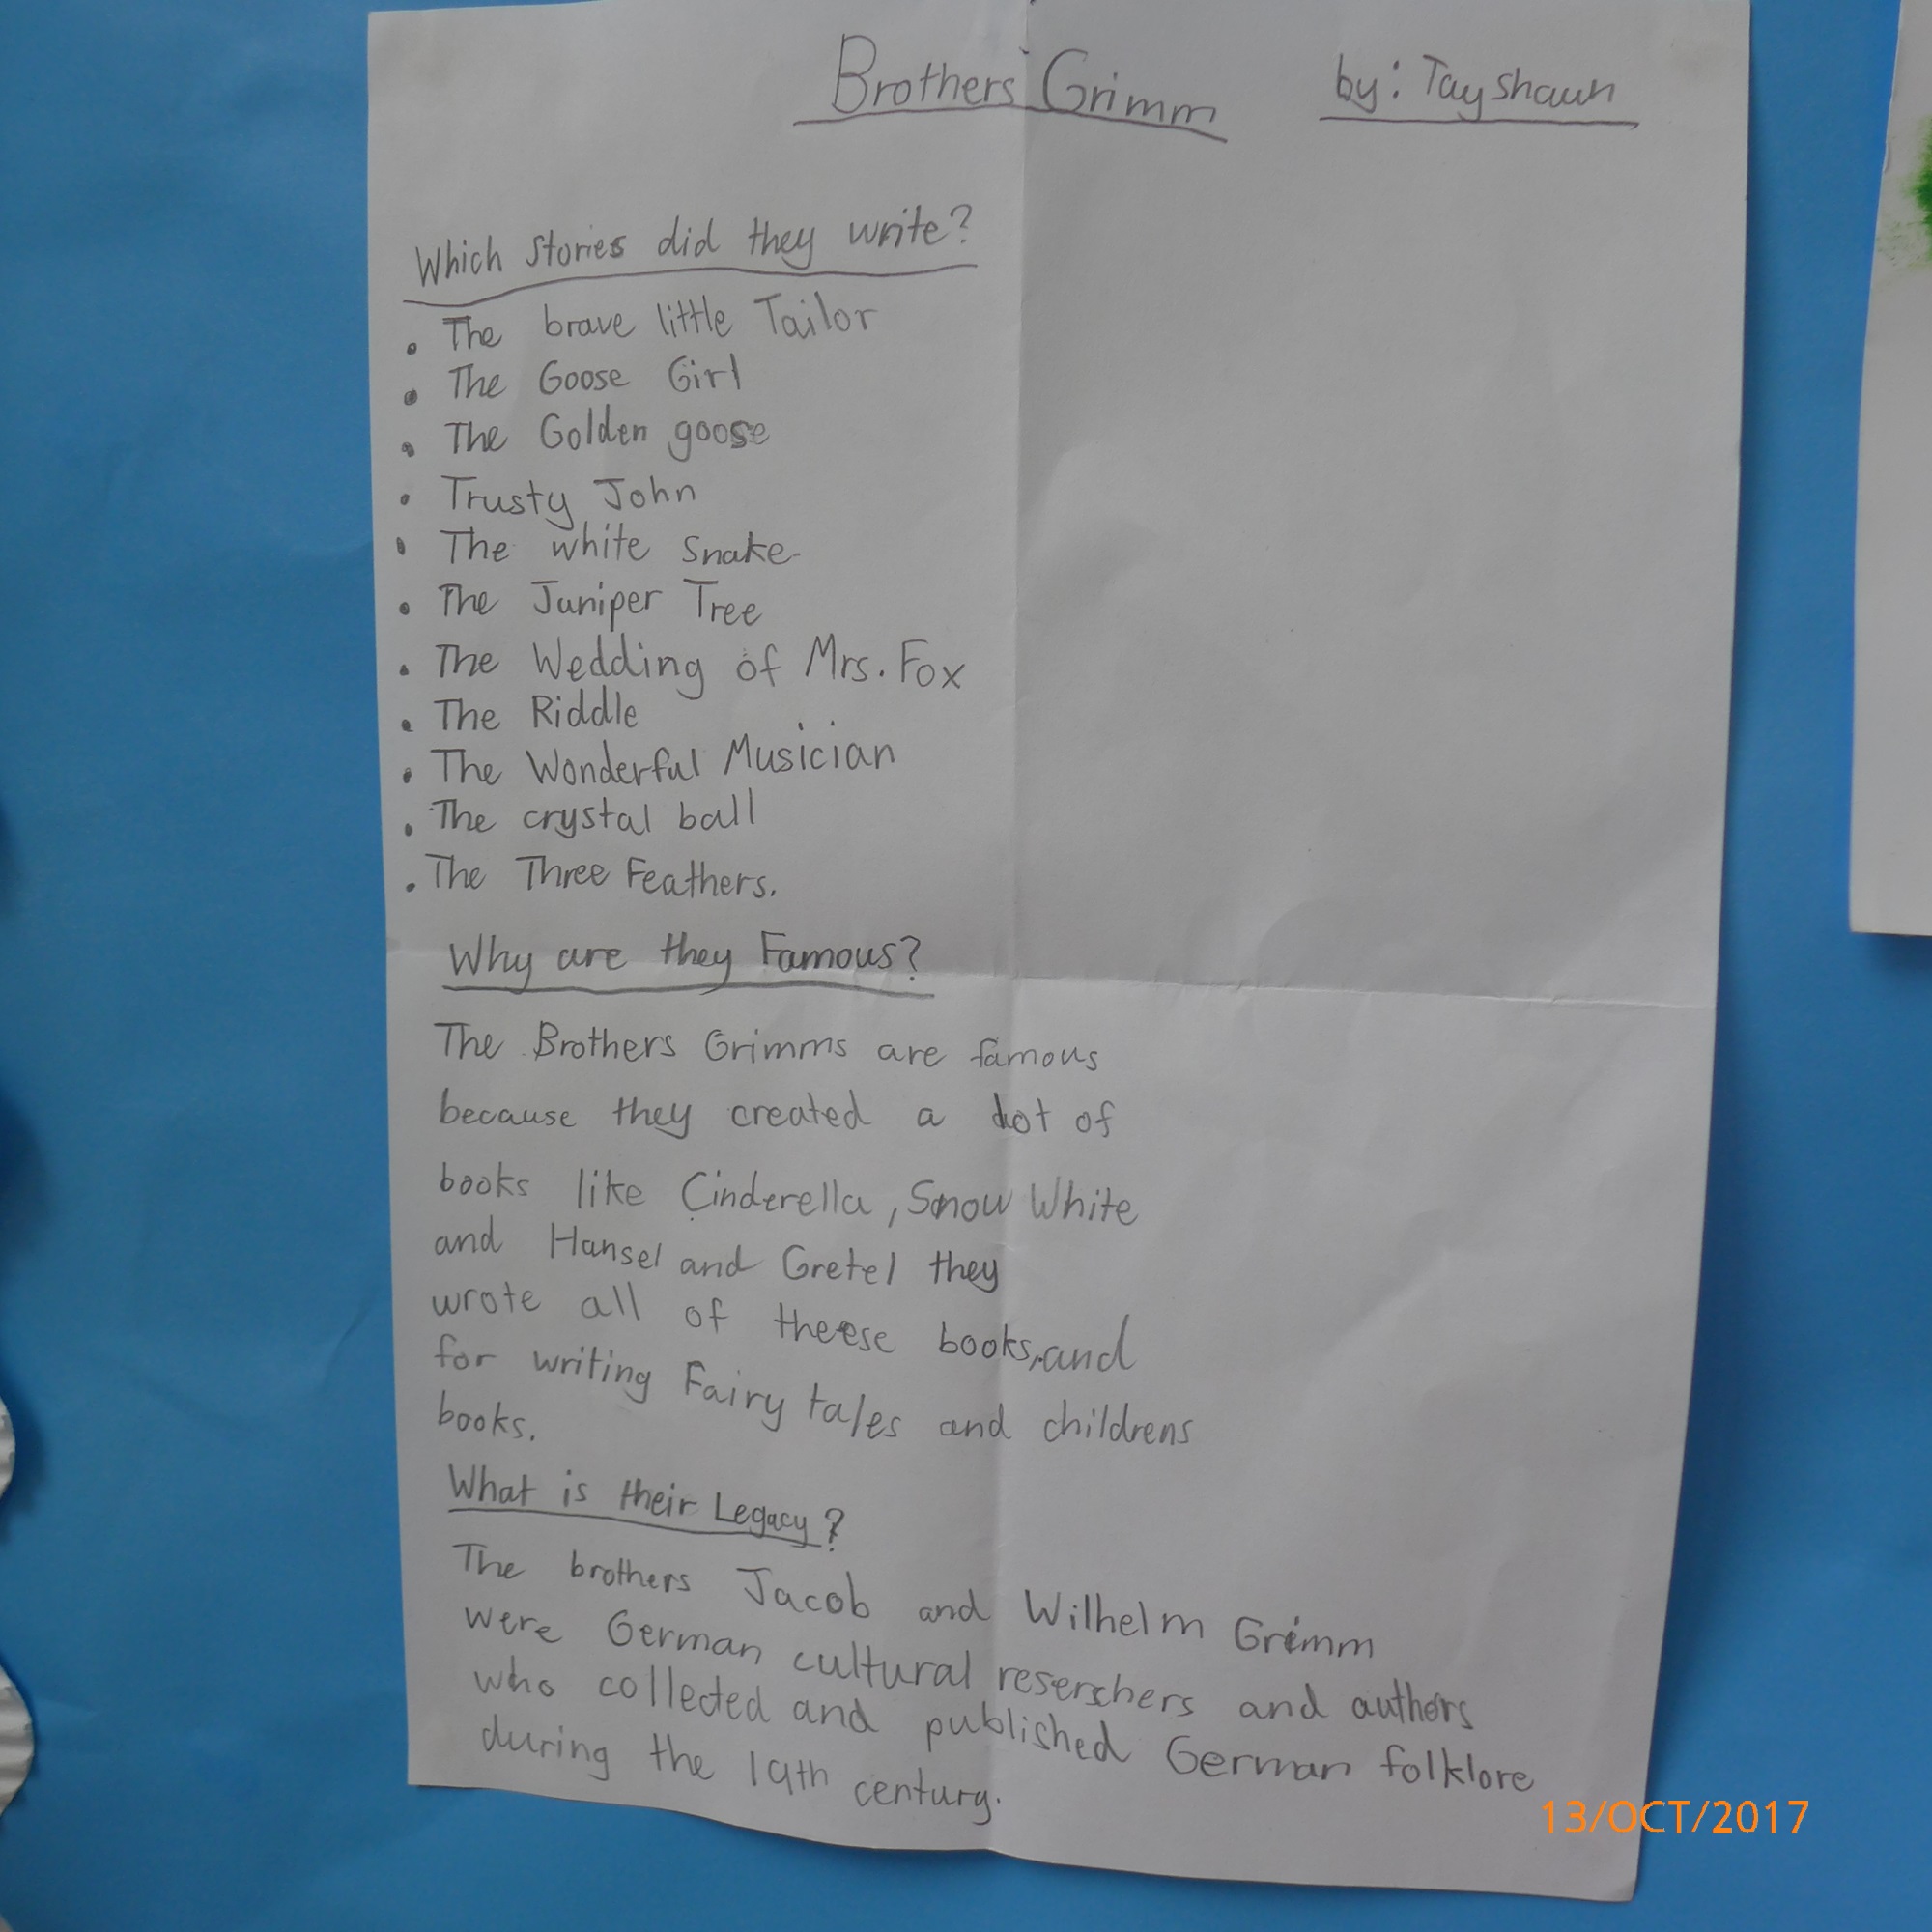 Brothers Grimm by: Tayshaun
Which stories did they write?
• The brave little Tailor
• The Goose Girl
• The Golden goose
• Trusty John
• The white snake
• The Juniper Tree
• The Wedding of Mrs. Fox
• The Riddle
• The Wonderful Musician
• The crystal ball
• The Three Feathers.
Why are they Famous?
The Brothers Grimms are famous
because they created a lot of
books like Cinderella, Snow White
and Hansel and Gretel they
wrote all of theese books, and
for writing Fairy tales and childrens
books.
What is their Legacy?
The brothers Jacob and Wilhelm Grimm
were German cultural reserchers and authors
who collected and published German folklore
during the 19th century.
13/OCT/2017